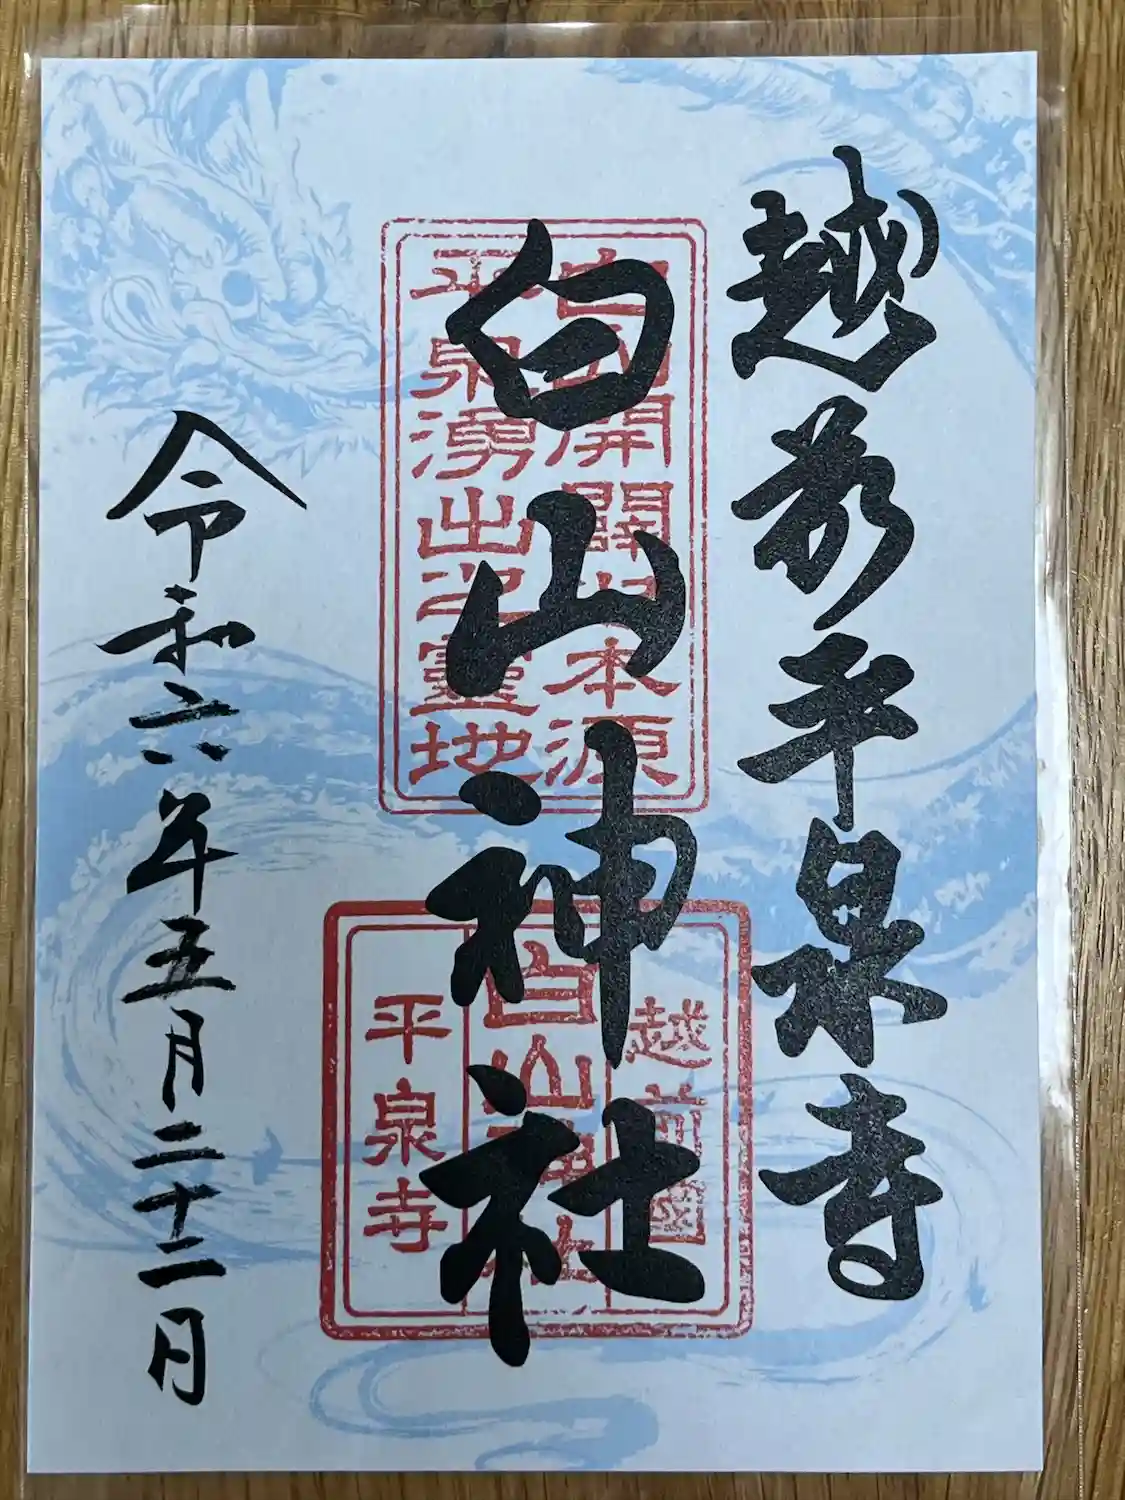 越前平泉寺
白山神社
令和六年五月二十二日
開闢之本源
平泉湧出之靈地
越前國
白山神社
平泉寺